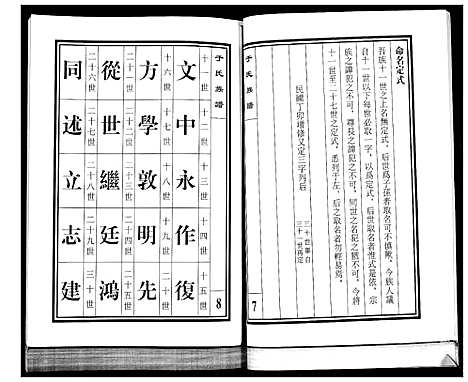 命名定式
吾族十一世之上名無定式，后世為子孫者取名可不慎歟，今族人議
自十一世以下每世必取一字，以為定式，后世取名者惟式是依，宗
族之諱犯之不可，尊長之諱犯之不可，同世之名犯之猶不可，今將
十一世至二十七世之定式，悉列于左，后之取名者勿輕易焉。
民國丁卯增修又定三字列后
7
于氏族譜
十一世 十二世 十三世 十四世 十五世
文 中 永 作 復
十六世 十七世 十八世 十九世 二十世
方 學 敦 明 先
二十一世 二十二世 二十三世 二十四世 二十五世
從 世 繼 廷 鴻
二十六世 二十七世 二十八世 二十九世 三十世
同 述 立 志 建
8